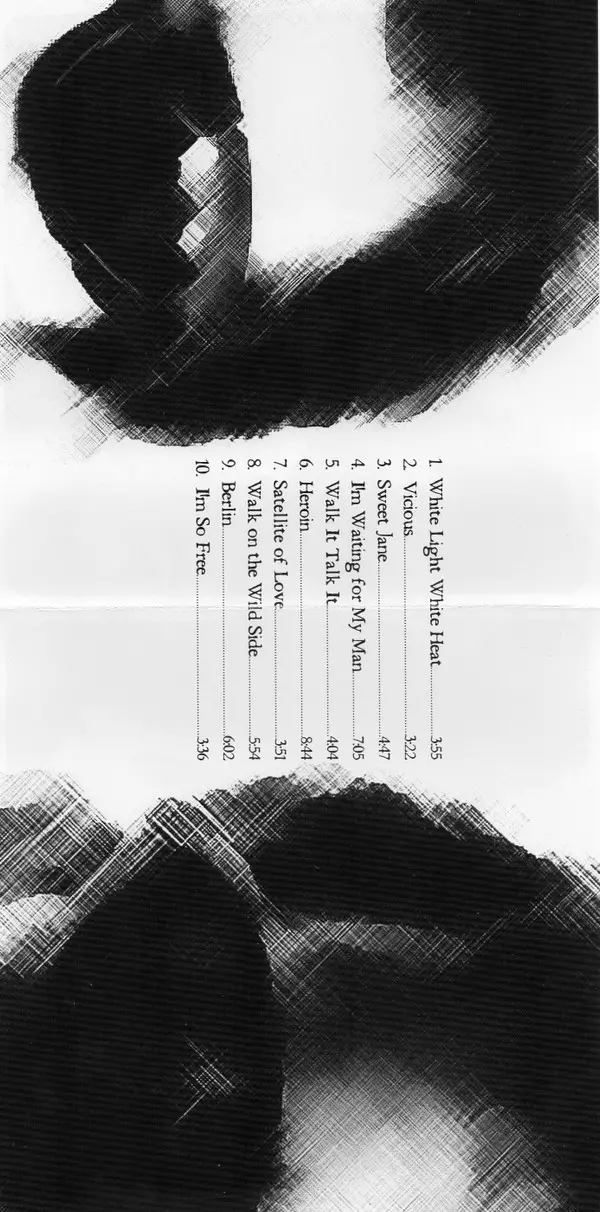 1. White Light White Heat 3:55
2. Vicious 3:22
3. Sweet Jane 4:47
4. I'm Waiting for My Man 7:05
5. Walk It Talk It 4:04
6. Heroin 8:44
7. Satellite of Love 3:51
8. Walk on the Wild Side 5:54
9. Berlin 6:02
10. I'm So Free 3:36